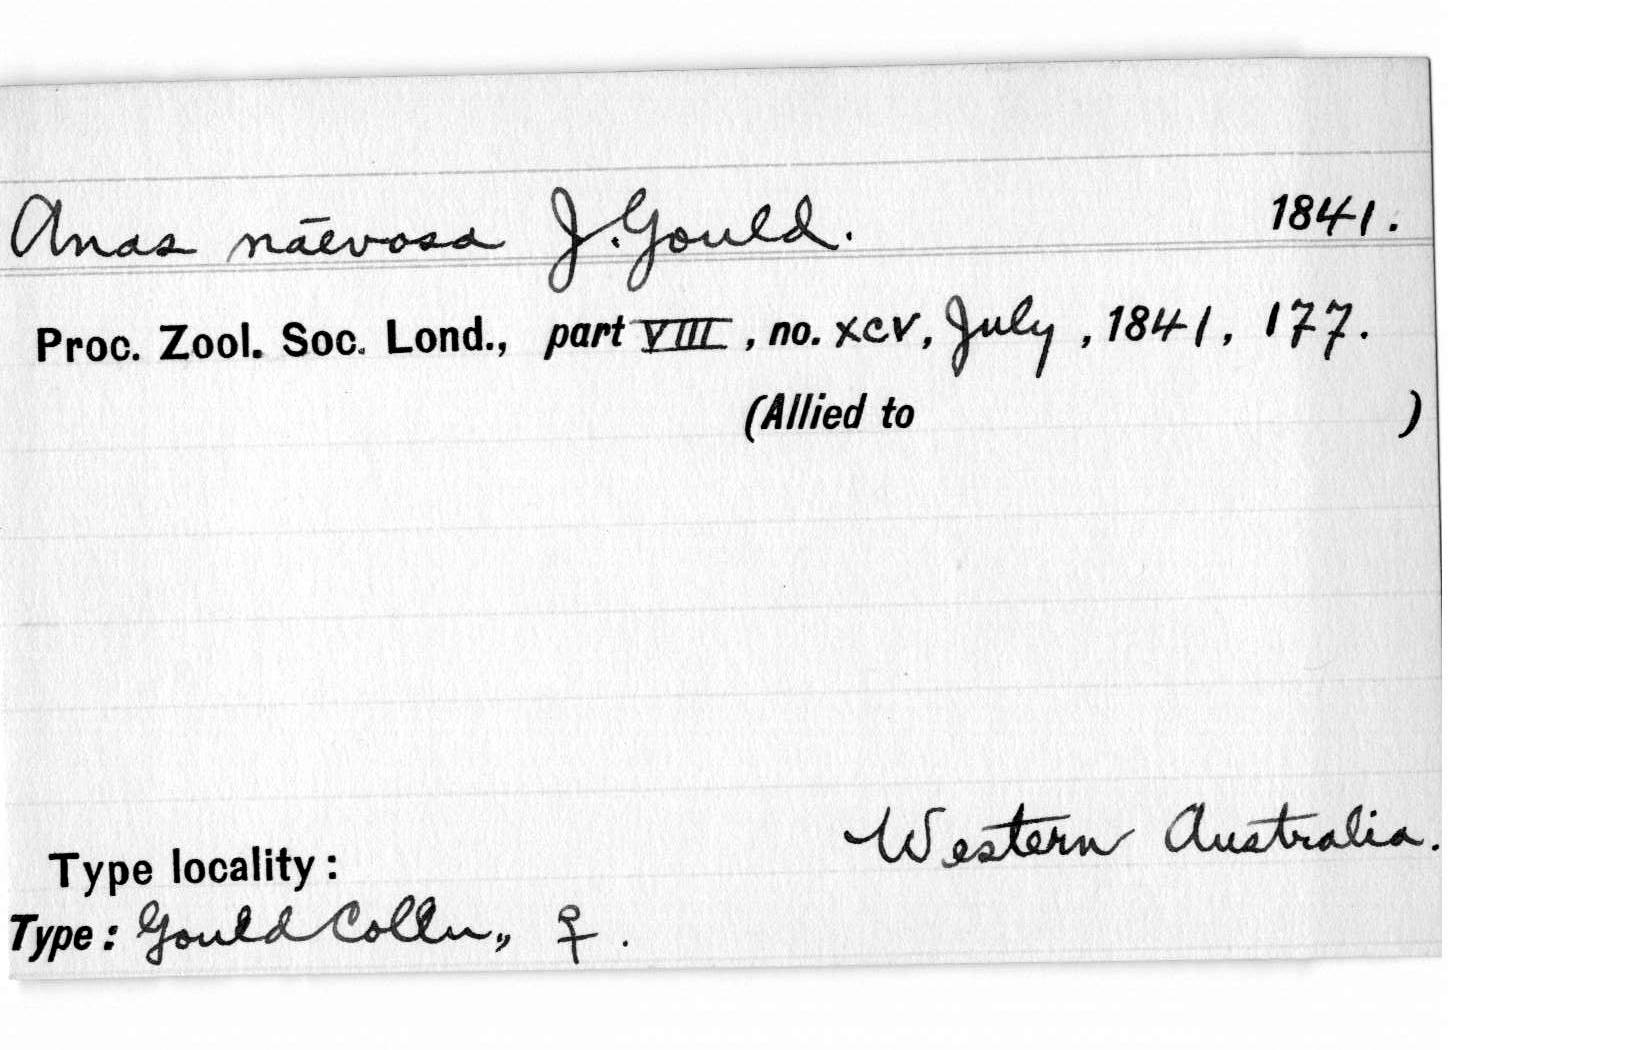 Anas nāevosa J. Gould. 1841.
Proc. Zool. Soc. Lond., part VIII, no. xcv, July, 1841, 177.
(Allied to )
Western Australia.
Type locality:
Type: Gould Colln., ♀.